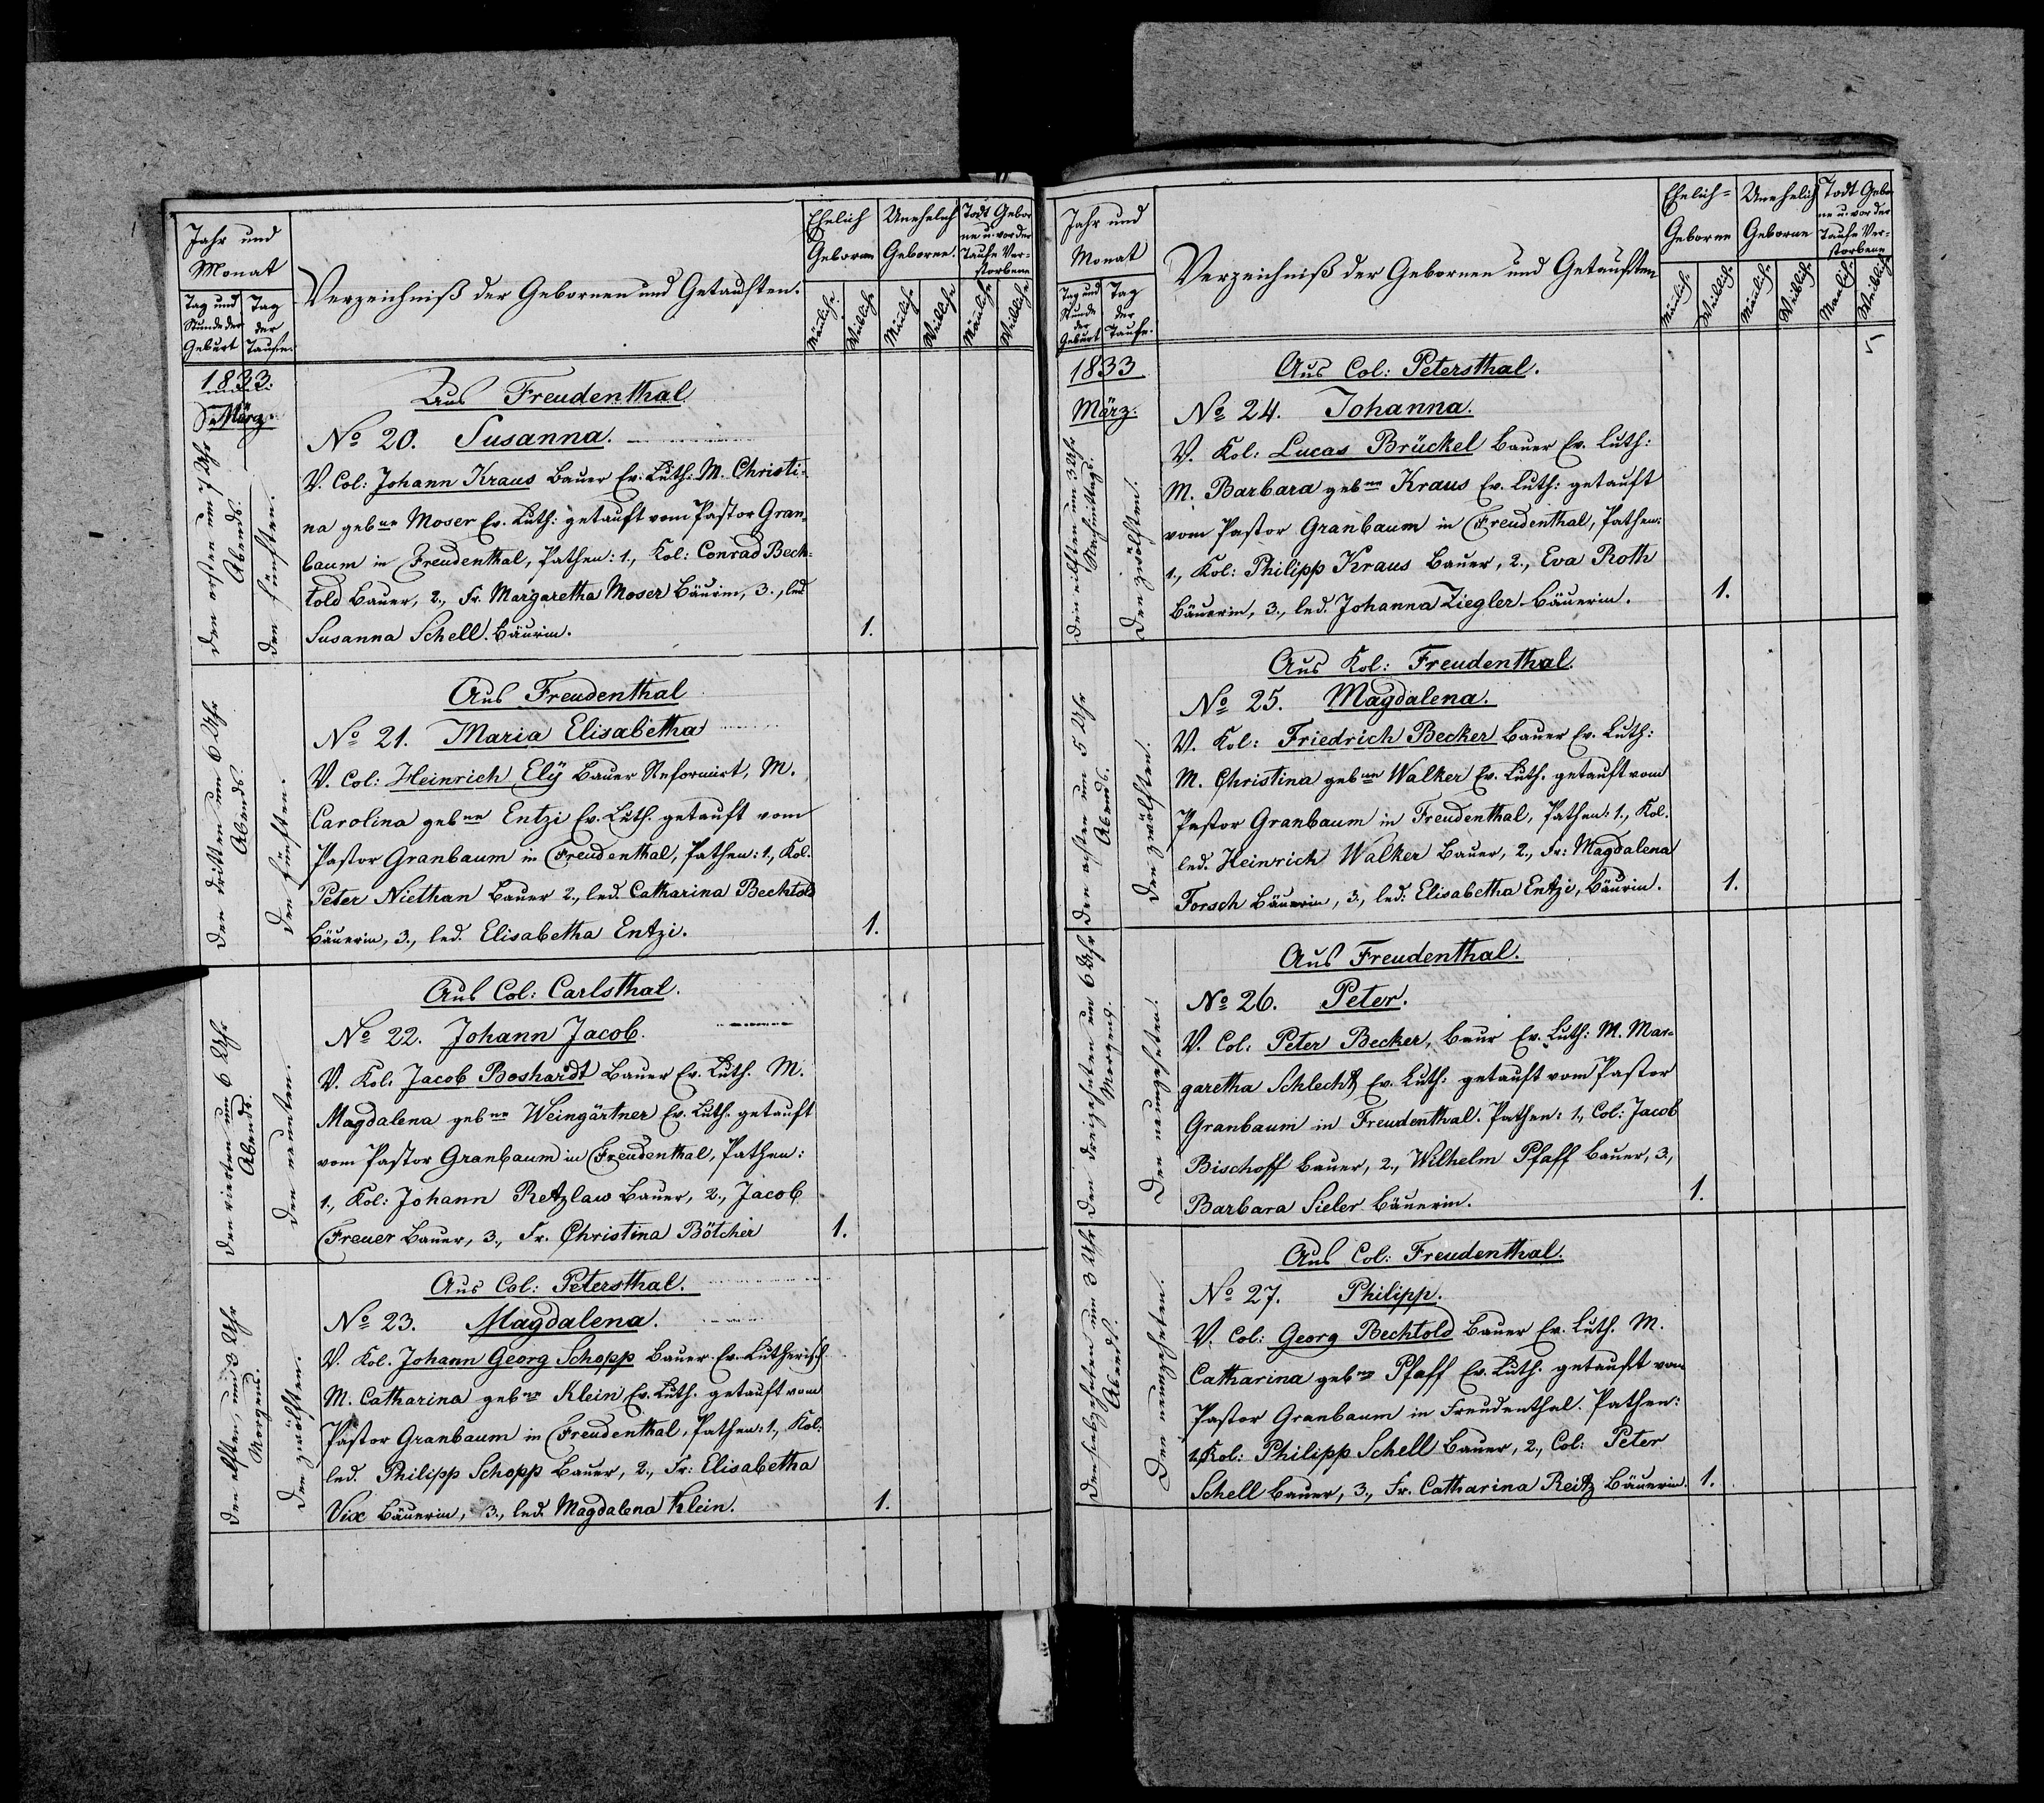 Jahr und
Monat
Tag und
Stunde der
Geburt
Tag
der
Taufe.
Verzeichniß der Gebornen und Getauften.
Ehelich
Geboren
Unehelich
Geborne.
Todt Gebor
ne u. vor der
Taufe Ver-
storbene
Mänliche
Weibliche
Mänliche
Weibliche
Mänliche
Weibliche
1833.
März.
den ersten um 7 Uhr
Abends.
den fünften.
Aus Freudenthal
No 20. Susanna.
V. Col: Johann Kraus Bauer Ev. Luth: M. Christi-
na gebne Moser Ev. Luth: getauft vom Pastor Gran-
baum in Freudenthal, Pathen: 1., Kol: Conrad Bech-
told Bauer, 2., Fr. Margaretha Moser Bäurin, 3., led
Susanna Schell. Bäurin.
1.
den dritten um 6 Uhr
Abends.
den fünften.
Aus Freudenthal
No 21. Maria Elisabetha
V. Col: Heinrich Elÿ Bauer Reformirt, M.
Carolina gebne Entzi Ev. Luth. getauft vom
Pastor Granbaum in Freudenthal, Pathen: 1., Kol.
Peter Niethan Bauer 2., led. Catharina Bechtold
Bäuerin, 3., led. Elisabetha Entzi.
1.
den vierten um 6 Uhr
Abends.
den neunten.
Aus Col: Carlsthal.
No 22. Johann Jacob.
V. Kol. Jacob Boshardt Bauer Ev. Luth. M.
Magdalena gebne Weingärtner Ev. Luth. getauft
vom Pastor Granbaum in Freudenthal, Pathen:
1., Kol: Johann Retzlaw Bauer, 2., Jacob
Freuer Bauer, 3., Fr. Christina Bötcher
1.
den elften, um 3 Uhr
Morgens.
den zwölften.
Aus Col: Petersthal.
No 23. Magdalena.
V. Kol. Johann Georg Schopp Bauer Ev. Lutherisch
M. Catharina gebne Klein Ev. Luth. getauft vom
Pastor Granbaum in Freudenthal, Pathen: 1., Kol:
led. Philipp Schopp Bauer, 2., Fr: Elisabetha
Vix Bäuerin, 3., led. Magdalena Klein.
1.
Jahr und
Monat
Tag und
Stunde
der
Geburt
Tag
der
Taufe.
Verzeichniß der Gebornen und Getauften
Ehelich-
Geborne
Unehelich
Geborne
Todt Gebor
ne u. vor der
Taufe Ver-
storbene
Mänlich.
Weiblich.
Mänlich.
Weiblich.
Mänlich.
Weiblich
1833
März.
den eilften um 3 Uhr
Nachmittags.
den zwölften.
Aus Col: Petersthal.
No 24. Johanna.
V. Kol: Lucas Brückel Bauer Ev. Luth:
M. Barbara gebne Kraus Ev. Luth: getauft
vom Pastor Granbaum in Freudenthal, Pathen:
1., Kol: Philipp Kraus Bauer, 2., Eva Roth
Bäuerin, 3., led. Johanna Ziegler Bäuerin.
1.
den ersten um 5 Uhr
Abends.
den zwölften.
Aus Kol: Freudenthal.
No 25. Magdalena.
V. Kol: Friedrich Becker Bauer Ev. Luth:
M. Christina gebne Walker Ev. Luth. getauft vom
Pastor Granbaum in Freudenthal, Pathen: 1., Kol.
led. Heinrich Walker Bauer, 2., Fr: Magdalena
Forsch Bäuerin, 3., led: Elisabetha Entzi, Bäurin.
1.
den dreizehnten um 6 Uhr
Morgens.
den neunzehnten.
Aus Freudenthal.
No 26. Peter.
V. Col: Peter Becker, Baur Ev. Luth: M. Mar-
garetha Schlecht Ev. Luth: getauft vom Pastor
Granbaum in Freudenthal. Pathen: 1., Col: Jacob
Bischoff Bauer, 2., Wilhelm Pfaff Bauer, 3.,
Barbara Sieler Bäuerin.
1.
den siebzehnten um 3 Uhr
Abends.
den neunzehnten.
Aus Col: Freudenthal.
No 27. Philipp.
V. Col: Georg Bechtold Bauer Ev. Luth. M.
Catharina gebne Pfaff Ev. Luth. getauft vom
Pastor Granbaum in Freudenthal. Pathen:
1. Kol: Philipp Schell Bauer, 2., Col: Peter
Schell Bauer, 3., Fr. Catharina Reitz Bäuerin.
1.